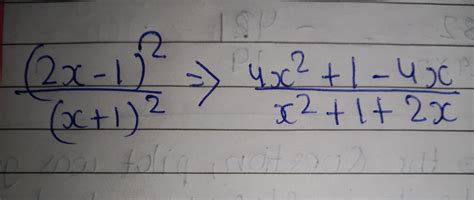 (2x-1)² / (x+1)² => 4x²+1-4x / x²+1+2x